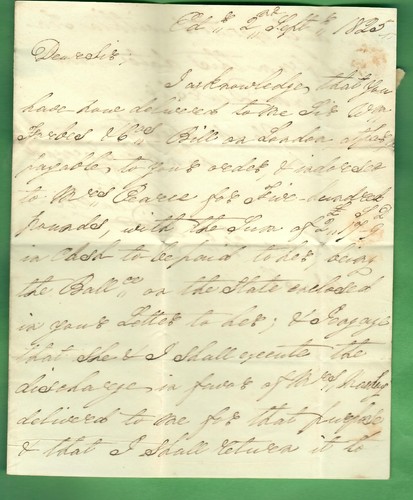 Edr. 2nd Septr. 1825
Dear Sir,
I acknowledge that you
have now delivered to me Sir Wm.
Forbes & Co.s Bill on London
payable to your order & indorsed
to Mrs Pearce for Five hundred
pounds, with the Sum of
in Cash to be paid to her, being
the Ballce. on the State enclosed
in your Letter to her; & I engage
that she & I shall execute the
discharge in favor of Mrs
delivered to me for that purpose
& that I shall return it to